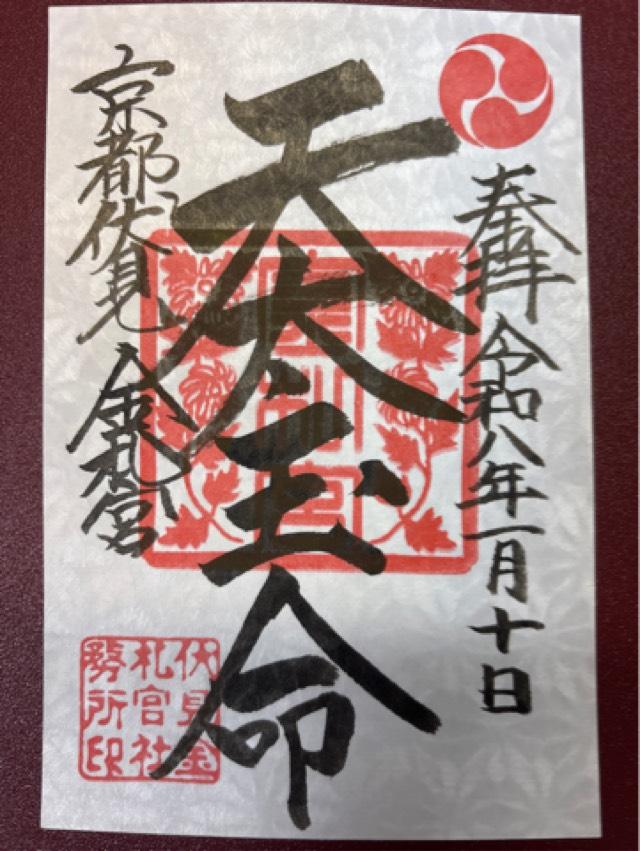 奉拝 令和八年一月十日
天太玉命
金札宮
京都伏見 金札宮
伏見金
札宮社
務所印